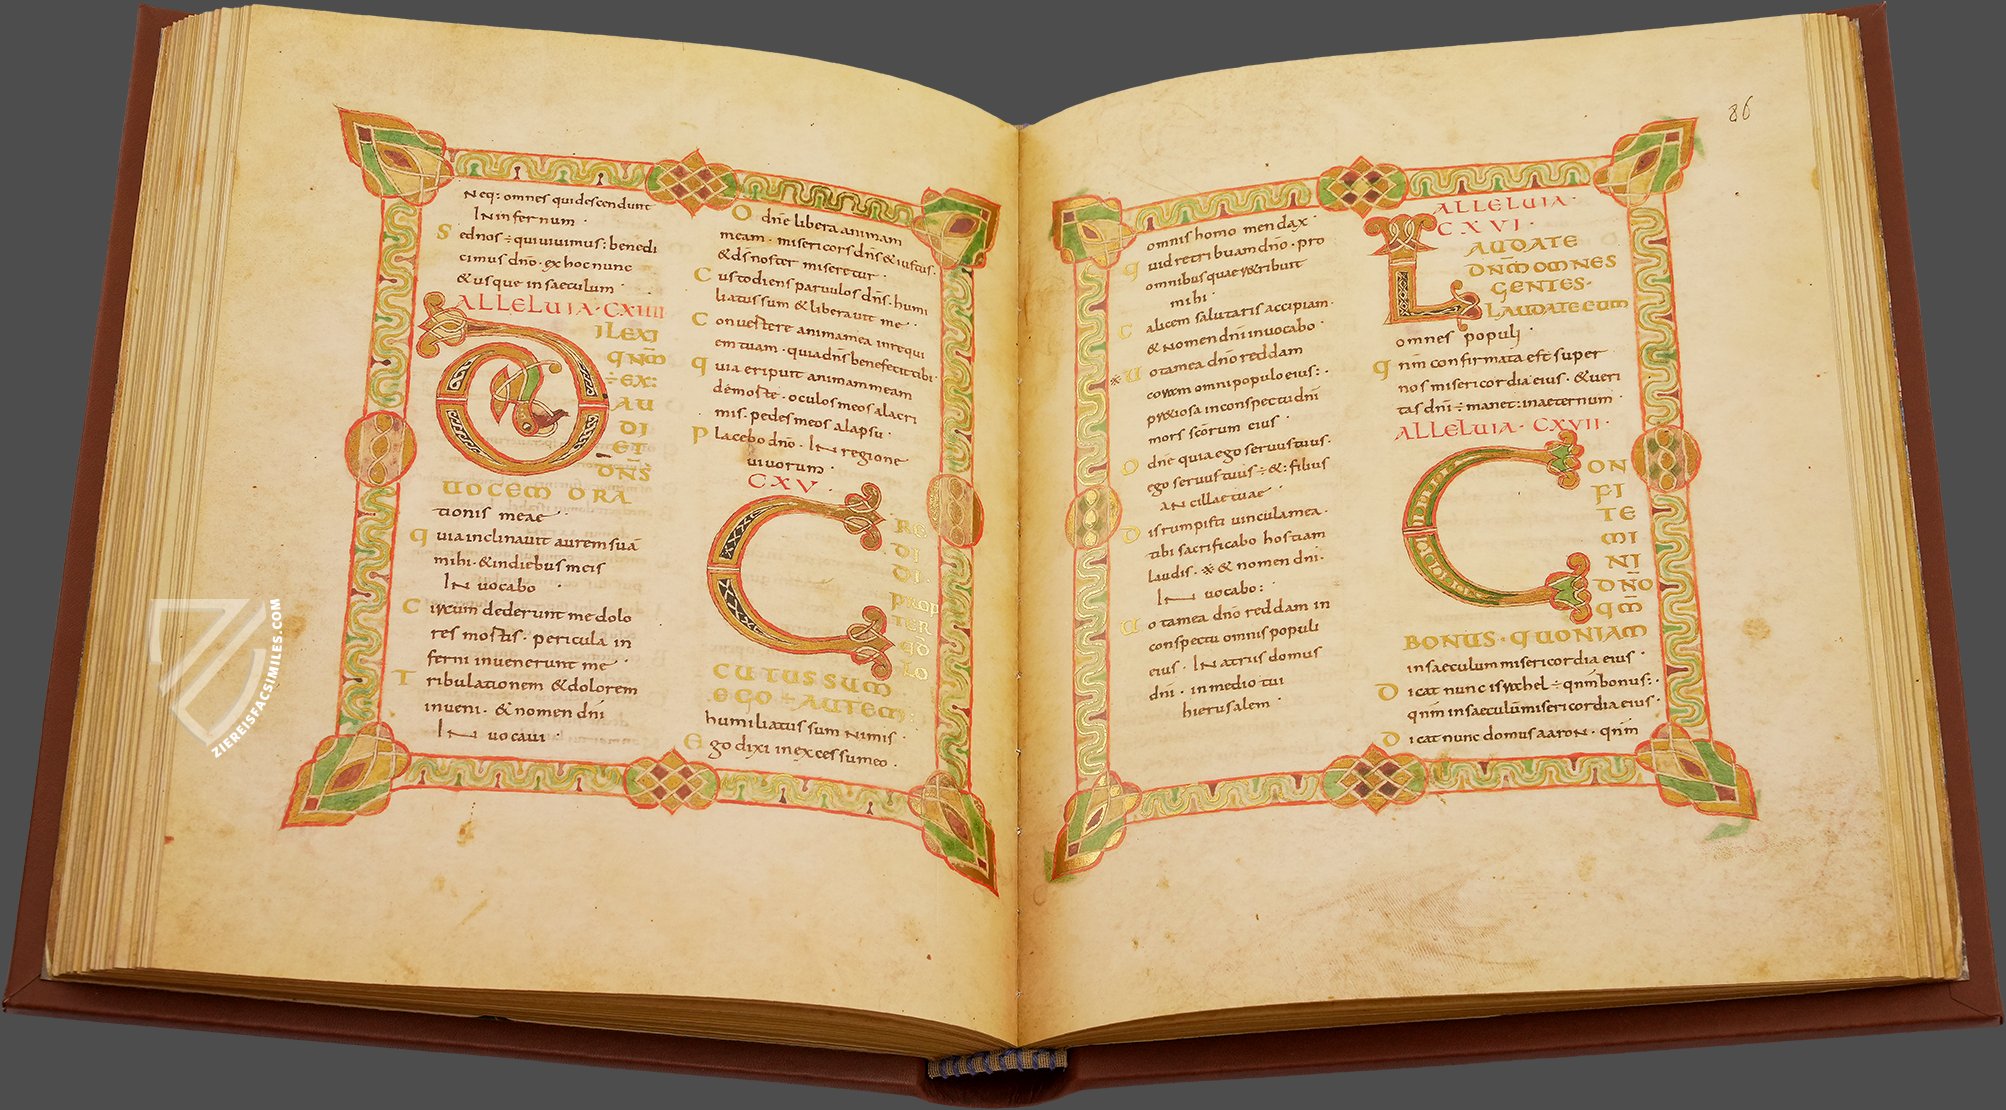 Neq: omnes quidescendunt
INinfernum ·
Sednos ÷ quiuiuimus: benedi
cimus dn̄o · exhocnunc
&usque insaeculum ·
ALLELUIA · CXIIII
DILEXI
qNM̄
÷EX:
AU
DI
ET
DN̄S
UOCEM ORA
tionis meae ·
Quiainclinauit auremsuā
mihi · &indiebusmeis
IN uocabo ·
Circum dederunt me dolo
res mortis · pericula in
ferni inuenerunt me ·
Tribulationem &dolorem
inueni · & nomen dn̄i
IN uocaui ·
O dn̄e libera animam
meam · misericors dn̄s &iustus ·
&ds noster miseretur ·
Custodiens paruulos dn̄s · humi
liatus sum &liberauit me ·
Conuertere animamea inrequi
em tuam · quiadn̄s benefecit tibi ·
quia eripuit animam meam
demorte · oculos meos alacri
mis · pedes meos alapsu ·
Placebo dn̄o · IN regione
uiuorum ·
CXV ·
CRE
DI
DI ·
PROP
TER
EQD
LO
CUTUS SUM
EGO ÷ AUTEM:
humiliatus sum Nimis ·
Ego dixi inexcessumeo ·
86
omnis homo mendax ·
quid retribuam dn̄o · pro
omnibus quae retribuit
mihi ·
Calicem salutaris accipiam ·
& Nomen dn̄i inuocabo ·
※Uotamea dn̄o reddam
coram omni populo eius: ·
praetiosa inconspectu dn̄i
mors scōrum eius ·
O dn̄e quia ego seruustuus ·
ego seruus tuus ÷ &: filius
ANcillaetuae ·
Disrumpisti uincula mea ·
tibi sacrificabo hostiam
laudis · ※ & nomen dn̄i ·
IN uocabo:
Uotamea dn̄o reddam in
conspectu omnis populi
eius · IN atriis domus
dn̄i · in medio tui
hierusalem ·
ALLELUIA ·
CXVI ·
LAUDATE
DN̄M OMNES
GENTES ·
LAUDATE EUM
omnes populi
qnm̄ confirmata est super
nos misericordia eius · &ueri
tas dn̄i ÷ manet: inaeternum ·
ALLELUIA · CXVII ·
CON
FI
TE
MI
NI
DN̄O
QM̄
BONUS · QUONIAM
insaeculum misericordia eius ·
Dicat nunc israhel ÷ qnm̄ bonus: ·
qnm̄ insaeculum̄ misericordia eius ·
Dicat nunc domus aaron · qnm̄
ZIEREISFACSIMILES.COM